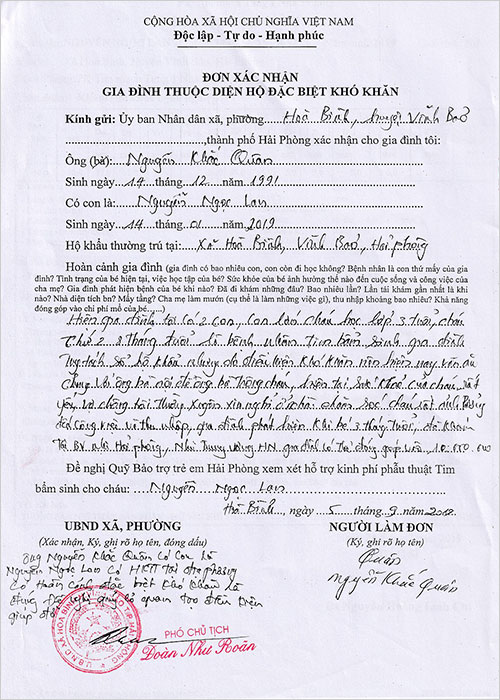 CỘNG HÒA XÃ HỘI CHỦ NGHĨA VIỆT NAM
Độc lập - Tự do - Hạnh phúc
ĐƠN XÁC NHẬN
GIA ĐÌNH THUỘC DIỆN HỘ ĐẶC BIỆT KHÓ KHĂN
Kính gửi: Ủy ban Nhân dân xã, phường Hoà Bình, huyện Vĩnh Bảo
,thành phố Hải Phòng xác nhận cho gia đình tôi:
Ông (bà): Nguyễn Khắc Quân
Sinh ngày 14 tháng 12 năm 1991
Có con là: Nguyễn Ngọc Lan
Sinh ngày 14 tháng 01 năm 2019
Hộ khẩu thường trú tại: Xã Hoà Bình, Vĩnh Bảo, Hải phòng
Hoàn cảnh gia đình (gia đình có bao nhiêu con, con còn đi học không? Bệnh nhân là con thứ mấy của gia
đình? Tình trạng của bé hiện tại, việc học tập của bé? Sức khỏe của bé ảnh hưởng thế nào đến cuộc sống và công việc của
cha mẹ? Gia đình phát hiện bệnh của bé khi nào? Đã đi khám những đâu? Bao nhiêu lần? Lần tái khám gần nhất là khi
nào? Nhà diện tích bn? Mấy tầng? Cha mẹ làm mướn (cụ thể là làm những việc gì), thu nhập khoảng bao nhiêu? Khả năng
đóng góp vào chi phí mổ của bé.,....)
Hiện gia đình tôi có 2 con, con lớn cháu học lớp 3 tuổi, cháu
thứ 2 8 tháng tuổi là bệnh nhân Tim bẩm sinh gia đình
hộ khẩu nhưng do điều kiện khó khăn nên hiện nay vẫn
chung với ông bà nội do ông bà hiện tại sức khoẻ của cháu rất
yếu, vợ chồng tôi thường xuyên xin nghỉ ở nhà chăm sóc cháu rất ảnh hưởng
đến công việc và thu nhập, gia đình phát hiện khi bé 3 tháng tuổi, đã khám
Tại BV nhi Hải phòng, Nhi Trung ương HN, gia đình có thể đóng góp được 10.000.000
Đề nghị Quỹ Bảo trợ trẻ em Hải Phòng xem xét hỗ trợ kinh phí phẫu thuật Tim
bẩm sinh cho cháu: Nguyễn Ngọc Lan
Hoà Bình, ngày 5 tháng 9
UBND XÃ, PHƯỜNG
(Xác nhận, Ký, ghi rõ họ tên, đóng dấu)
NGƯỜI LÀM ĐƠN
(Ký, ghi rõ họ tên)
Ông Nguyễn Khắc Quân có con là
Nguyễn Ngọc Lan có HKTT tại địa phương
có hoàn cảnh đặc biệt khó khăn là
đúng. Đề nghị quý cơ quan tạo điều kiện
giúp đỡ
Quân
Nguyễn Khắc Quân
PHÓ CHỦ TỊCH
Đoàn Như Roãn